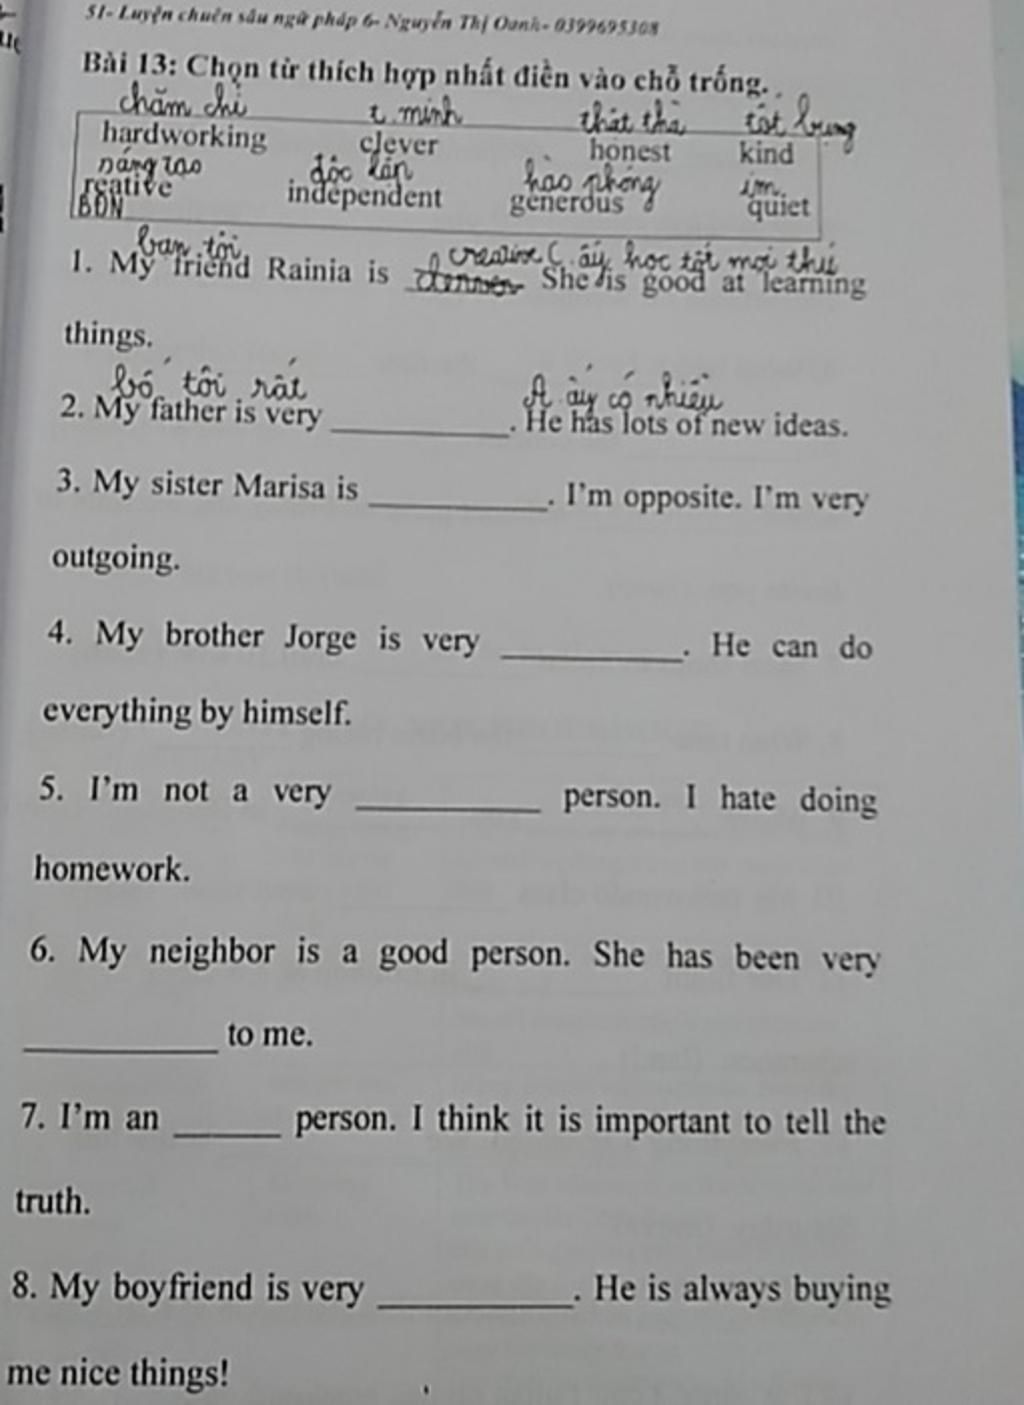 51- Luyện chuên sâu ngữ pháp 6- Nguyễn Thị Oanh- 0399695308
Bài 13: Chọn từ thích hợp nhất điền vào chỗ trống.
chăm chỉ t. minh thật thà tốt bụng
hardworking clever honest kind
sáng tạo độc lập hào phóng im
reative independent generous quiet
BDN
bạn tôi creative C. ấy học tốt mọi thứ
1. My friend Rainia is She is good at learning
things.
bố tôi rất A ấy có nhiều
2. My father is very __________. He has lots of new ideas.
3. My sister Marisa is __________. I'm opposite. I'm very
outgoing.
4. My brother Jorge is very __________. He can do
everything by himself.
5. I'm not a very __________ person. I hate doing
homework.
6. My neighbor is a good person. She has been very
__________ to me.
7. I'm an ______ person. I think it is important to tell the
truth.
8. My boyfriend is very __________. He is always buying
me nice things!